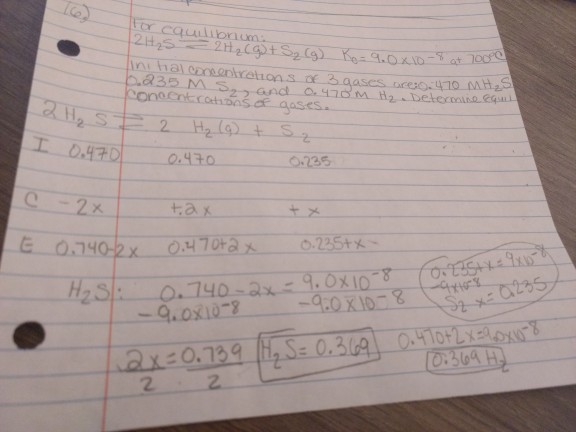 16)
For equilibrium:
2H₂S ⇌ 2H₂(g) + S₂(g) Kc = 9.0 x 10⁻⁸ at 700°C
Initial concentrations of 3 gases are 0.470 M H₂S
0.235 M S₂, and 0.470 M H₂. Determine equil
concentrations of gases.
2H₂S ⇌ 2 H₂(g) + S₂
I 0.470 0.470 0.235
C -2x +2x +x
E 0.740-2x 0.470+2x 0.235+x
H₂S: 0.740-2x = 9.0x10⁻⁸
-9.0x10⁻⁸ -9.0x10⁻⁸
0.235+x = 9x10⁻⁸
-9x10⁻⁸
S₂ x = 0.235
2x = 0.739
2 2
H₂S = 0.369
0.470+2x=9.0x10⁻⁸
0.369 H₂